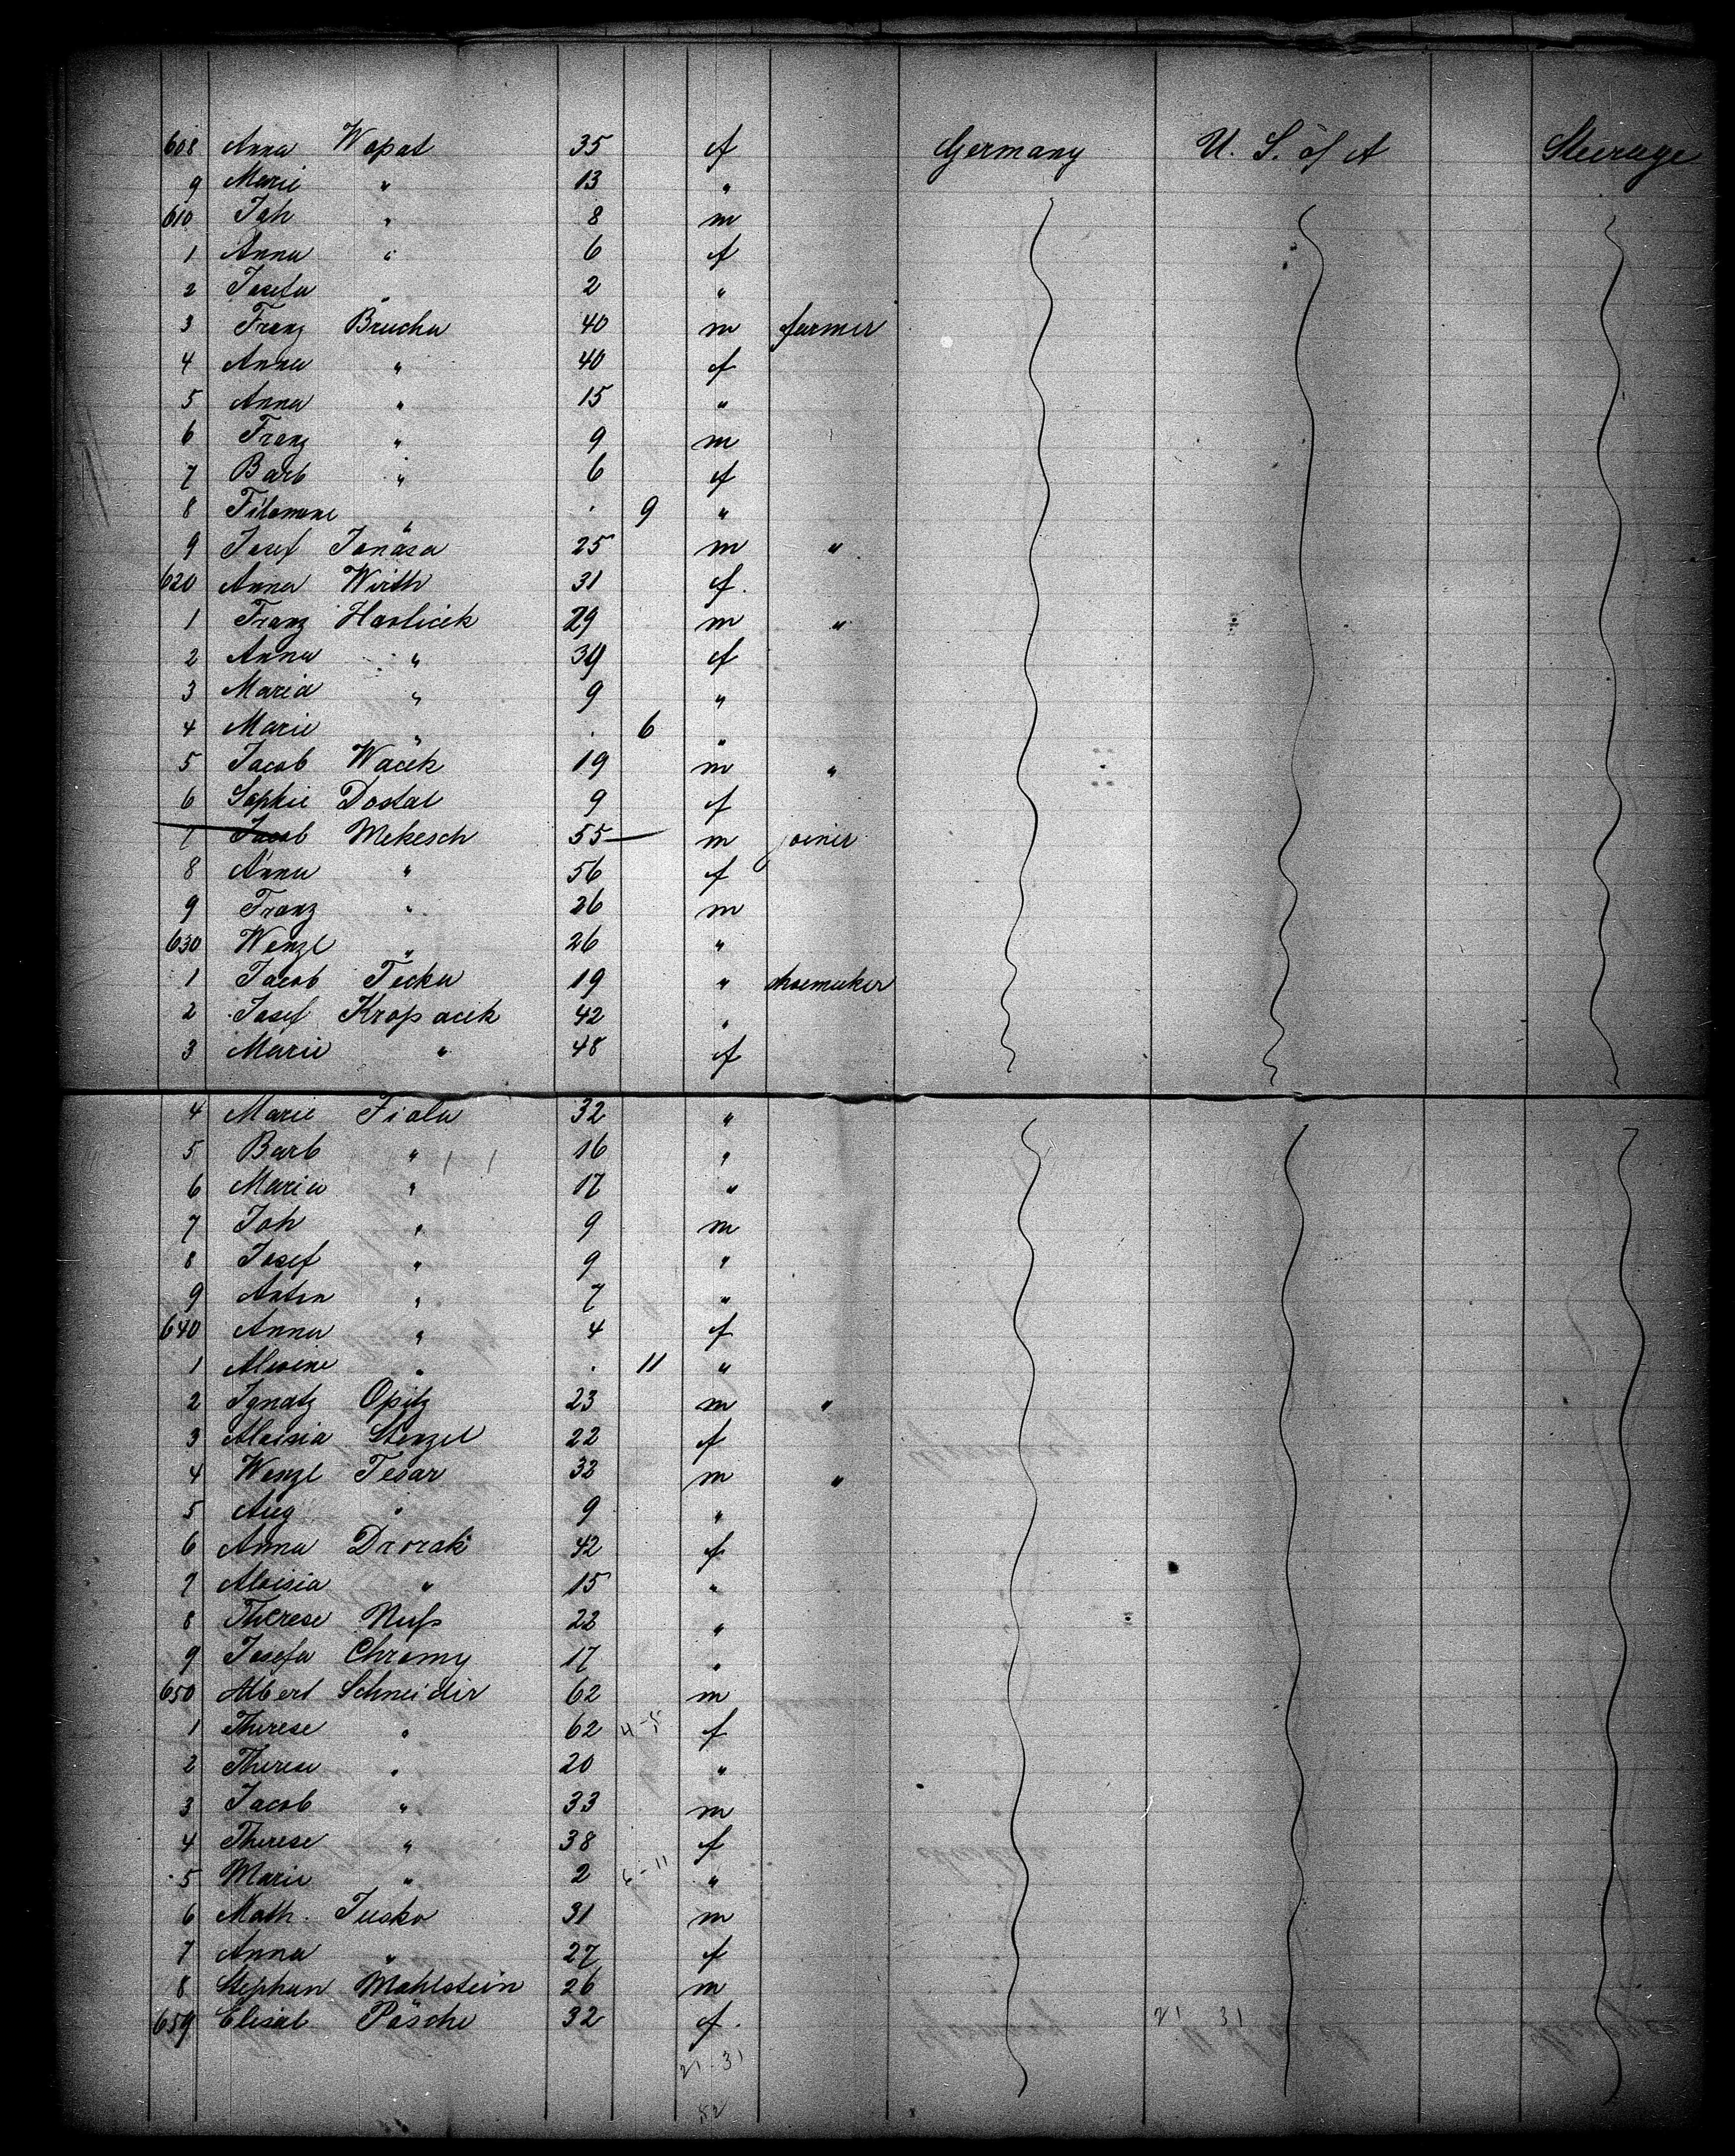 608 Anna Wopat 35 f Germany U. S. of A Steerage
9 Marie " 13 "
610 Joh " 8 m
1 Anna " 6 f
2 Josefa " 2 "
3 Franz Brucha 40 m farmer
4 Anna " 40 f
5 Anna " 15 "
6 Franz " 9 m
7 Barb " 6 f
8 Filomene " . 9 "
9 Josef Janăsa 25 m "
620 Anna Wirth 31 f.
1 Franz Havlicek 29 m "
2 Anna " f
3 Maria " 9 "
4 Marie " . 6 "
5 Jacob Wacek 19 m "
6 Sophie Dostal 9 f
7 Jacob Mekesch 55 m joiner
8 Anna " 56 f
9 Franz " 26 m
630 Wenzl " 26 "
1 Jacob Tecka 19 " shoemaker
2 Josef Kropacek 42 "
3 Marie " 48 f
4 Marie Fiala 32 "
5 Barb " 16 "
6 Maria " 17 "
7 Joh " 9 m
8 Josef " 9 "
9 Anton " 7 "
640 Anna " 4 f
1 Alvine " . 11 "
2 Ignatz Opitz 23 m "
3 Aloisia Stenzel 22 f
4 Wenzl Tesar 32 m "
5 Aug " 9 "
6 Anna Dvorak 42 f
7 Aloisia " 15 "
8 Therese Nuſs 22 "
9 Josefa Chromy 17 "
650 Albert Schneider 62 m
1 Therese " 62 4-5 f
2 Therese " 20 "
3 Jacob " 33 m
4 Therese " 38 f
5 Marie " 2 6-11 "
6 Math. Jusko 31 m
7 Anna " 27 f
8 Stephan Mahlstein 26 m
659 Elisab Päsche 32 f.
21 31
21-31
52